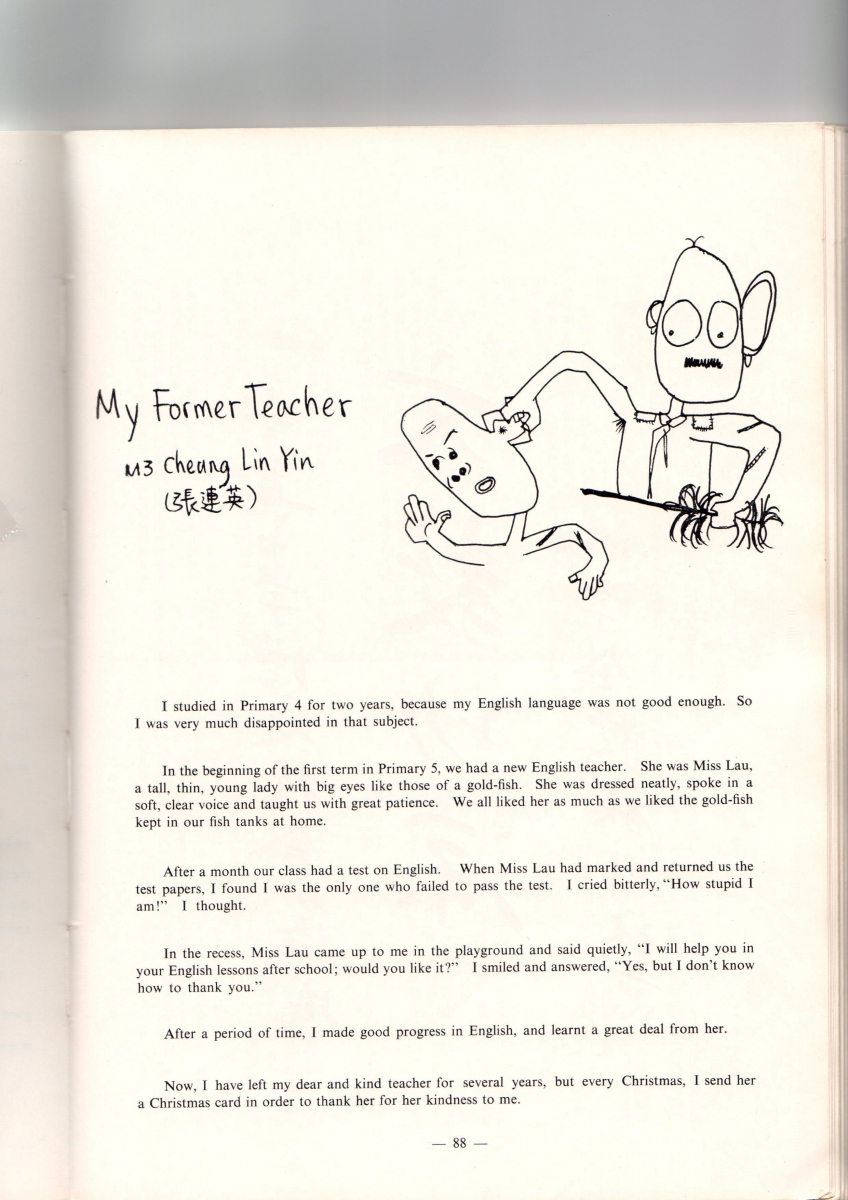 My Former Teacher
M3 Cheung Lin Yin
(張連英)
I studied in Primary 4 for two years, because my English language was not good enough. So
I was very much disappointed in that subject.
In the beginning of the first term in Primary 5, we had a new English teacher. She was Miss Lau,
a tall, thin, young lady with big eyes like those of a gold-fish. She was dressed neatly, spoke in a
soft, clear voice and taught us with great patience. We all liked her as much as we liked the gold-fish
kept in our fish tanks at home.
After a month our class had a test on English. When Miss Lau had marked and returned us the
test papers, I found I was the only one who failed to pass the test. I cried bitterly, “How stupid I
am!” I thought.
In the recess, Miss Lau came up to me in the playground and said quietly, “I will help you in
your English lessons after school; would you like it?” I smiled and answered, “Yes, but I don’t know
how to thank you.”
After a period of time, I made good progress in English, and learnt a great deal from her.
Now, I have left my dear and kind teacher for several years, but every Christmas, I send her
a Christmas card in order to thank her for her kindness to me.
— 88 —